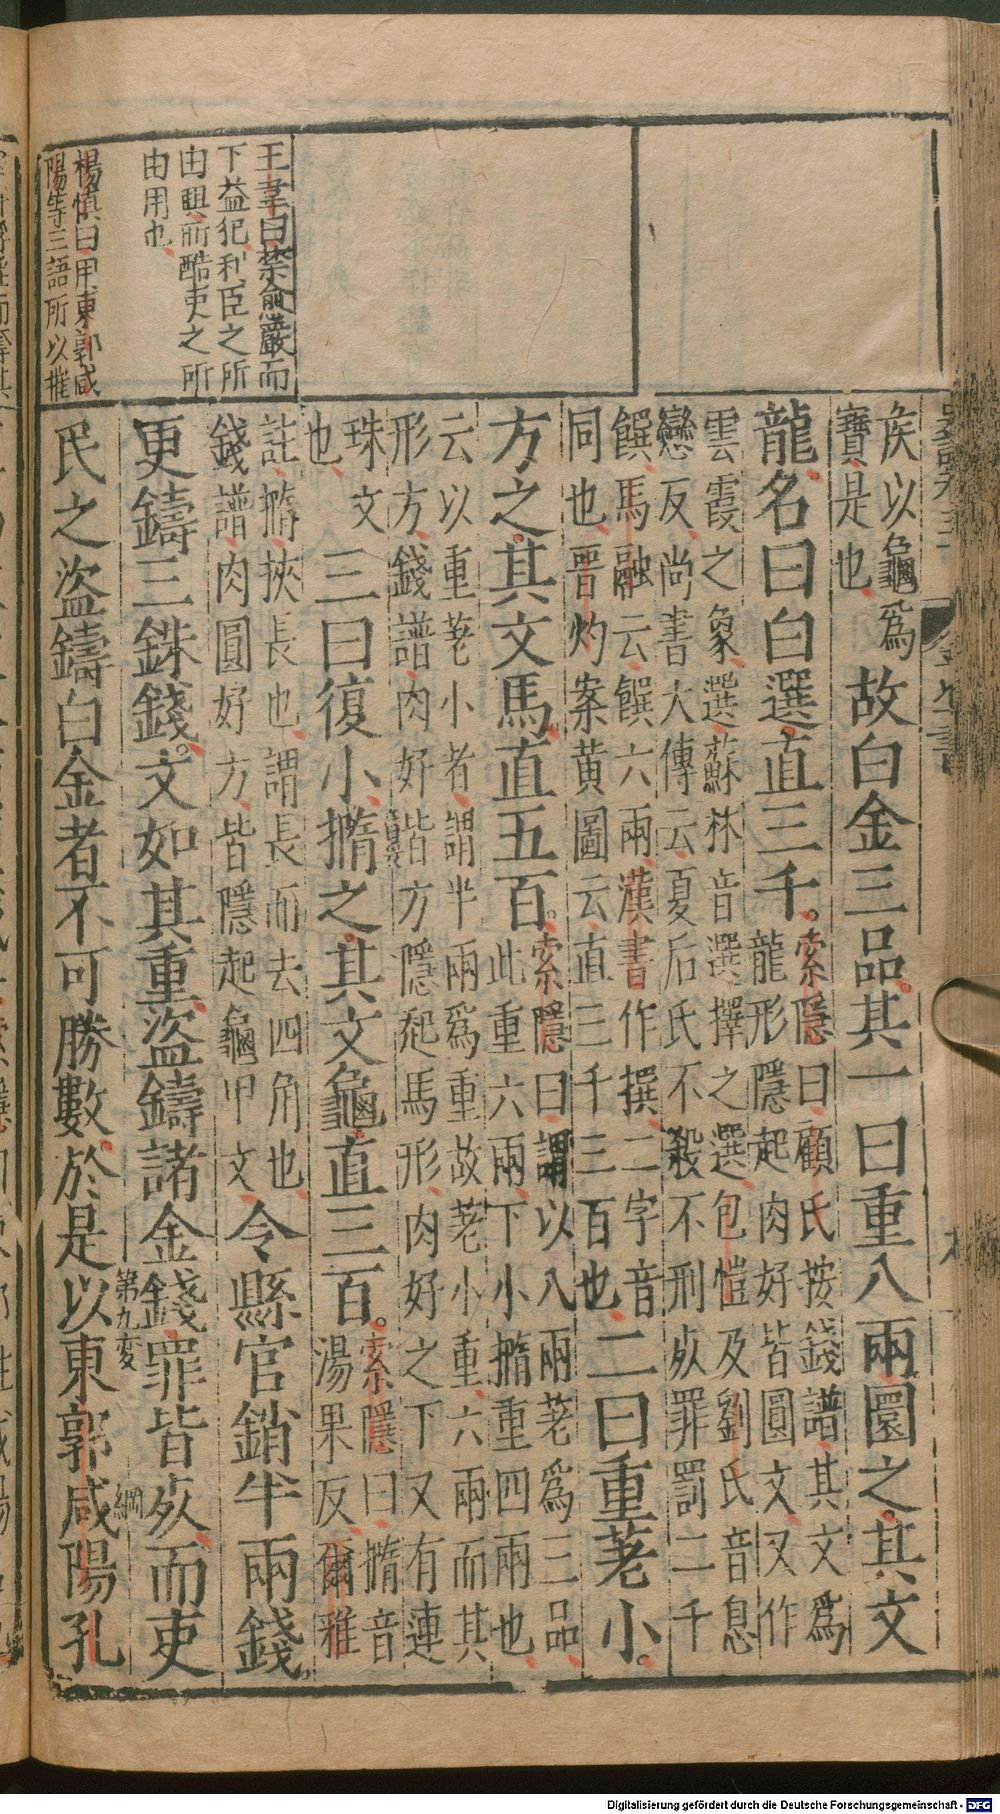 矦以龜爲
寶是也
故白金三品其一曰重八兩圜之其文
龍名曰白選直三千
索隱曰顧氏按錢譜其文爲
龍形隱起肉好皆圓文又作
雲霞之象選蘇林音選擇之選包愷及劉氏音息
戀反尚書大傳云夏后氏不殺不刑死罪罰二千
饌馬融云饌六兩漢書作撰二字音
同也晋灼案黄圖云直三千三百也
二曰重差小
方之其文馬直五百
索隱曰謂以八兩差爲三品
此重六兩下小撱重四兩也
云以重差小者謂半兩爲重故差小重六兩而其
形方錢譜肉好皆方隱起馬形肉好之下又有連
珠文
也
三曰復小撱之其文龜直三百
索隱曰撱音
湯果反爾雅
註撱挾長也謂長而去四角也
錢譜肉圓好方皆隱起龜甲文
令縣官銷半兩錢
王韋曰禁愈嚴而
下益犯利臣之所
由興而酷吏之所
由用也
更鑄三銖錢文如其重盜鑄諸金錢罪皆死而吏
第九变
綱
楊慎曰用東郭咸
陽等三語所以摧
民之盜鑄白金者不可勝數於是以東郭咸陽孔
Digitalisierung gefördert durch die Deutsche Forschungsgemeinschaft - DFG